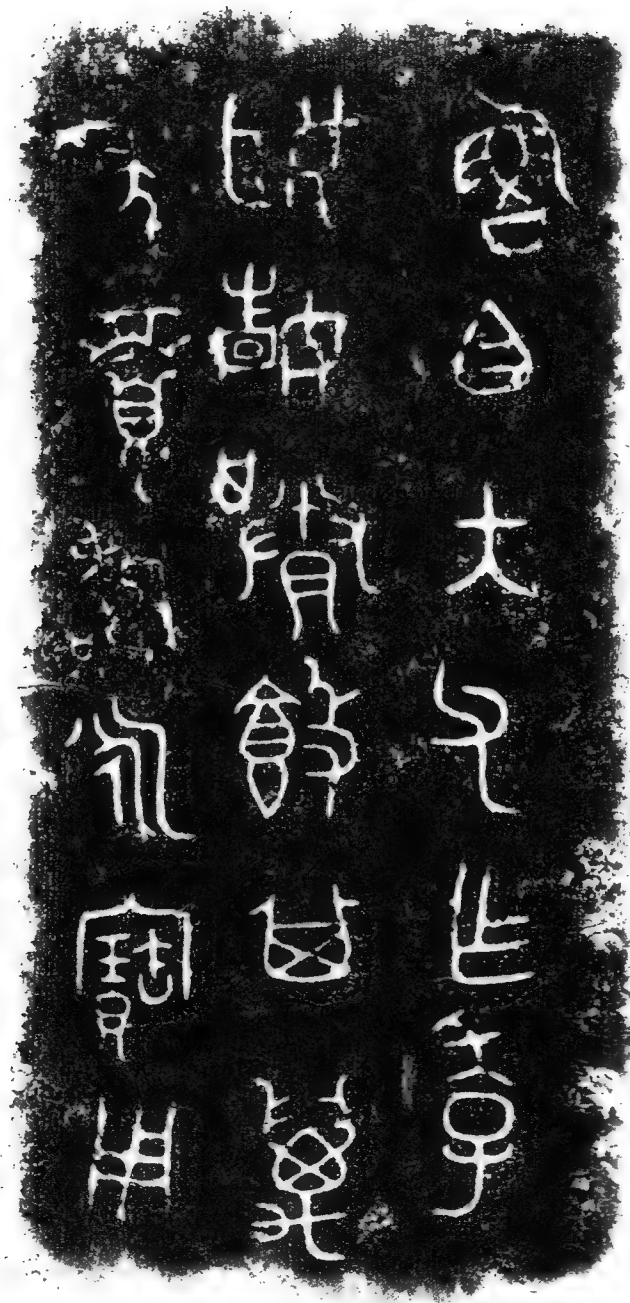 魯白大父乍季
姬婧媵𣪘其萬
年眉壽永寶用